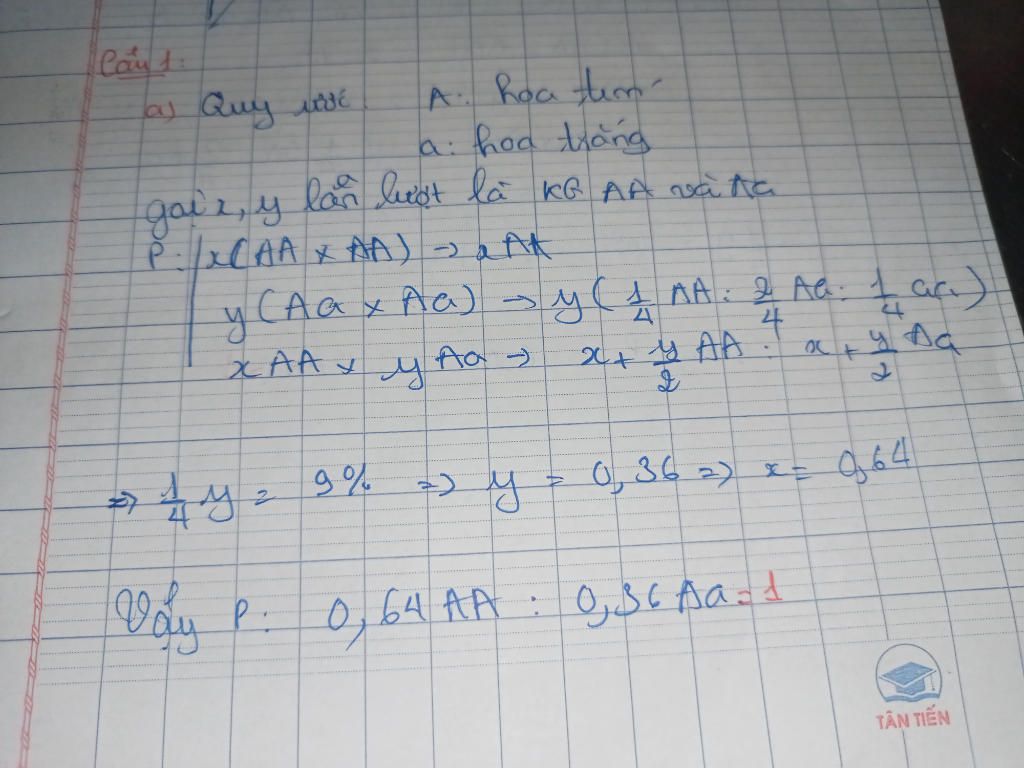 Câu 1:
a) Quy ước A: hoa tím
a: hoa trắng
gọi x, y lần lượt là KG AA và Aa
P: x(AA x AA) → xAA
y(Aa x Aa) → y(1/4 AA : 2/4 Aa : 1/4 aa)
xAA x yAa → x + y/2 AA : x + y/2 Aa
=> 1/4 y = 9% => y = 0,36 => x = 0,64
Vậy P: 0,64 AA : 0,36 Aa = 1
TÂN TIẾN